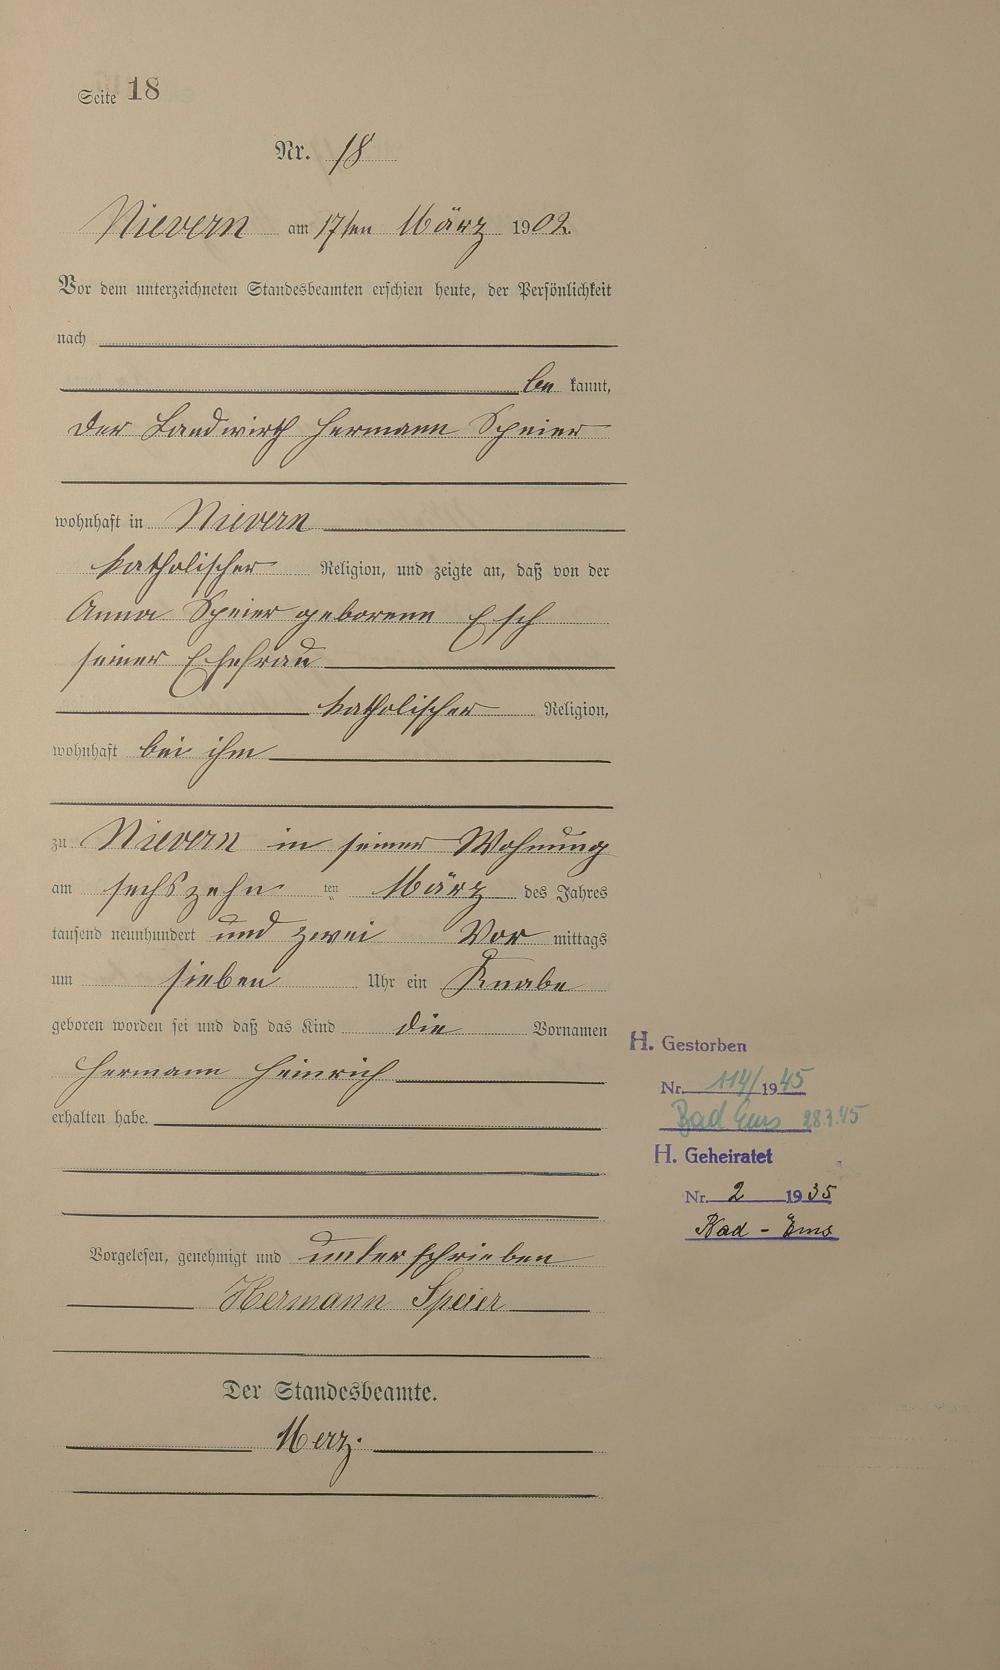 Seite 18
Nr. 18
Nievern am 17ten März 1902.
Vor dem unterzeichneten Standesbeamten erschien heute, der Persönlichkeit
nach
be kannt,
der Landwirth Hermann Speier
wohnhaft in Nievern
katholischer Religion, und zeigte an, daß von der
Anna Speier geborene Esch
seiner Ehefrau
katholischer Religion,
wohnhaft bei ihm
zu Nievern in seiner Wohnung
am sechszehn ten März des Jahres
tausend neunhundert und zwei Vor mittags
um sieben Uhr ein Knabe
geboren worden sei und daß das Kind die Vornamen
Hermann Heinrich
erhalten habe.
H. Gestorben
Nr. 114/1945
Bad Ems 28.3.45
H. Geheiratet
Nr. 2 1935
Bad - Ems
Vorgelesen, genehmigt und unterschrieben
Hermann Speier
Der Standesbeamte.
Merz.